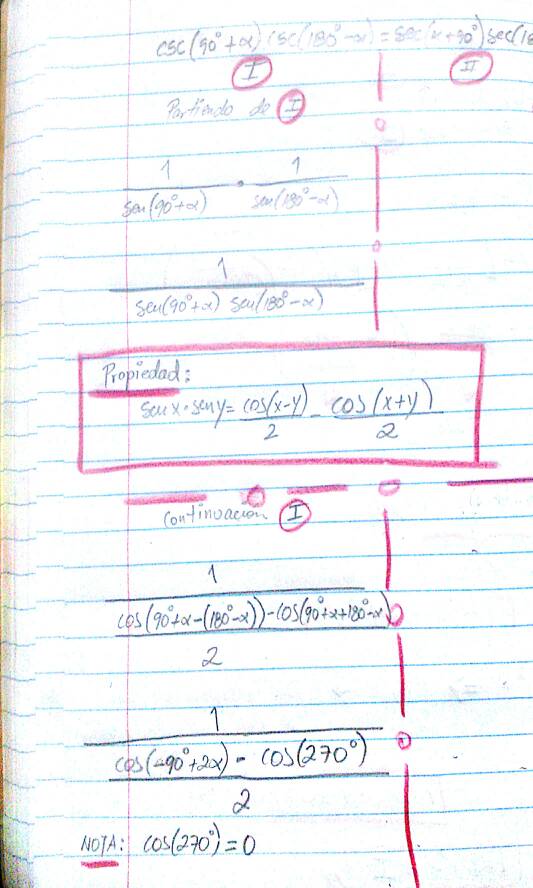 csc(90°+α) csc(180°-α) = sec(x+90°) sec(18
I II
Partiendo de I
1/sen(90°+α) · 1/sen(180°-α)
1/sen(90°+α) sen(180°-α)
Propiedad:
sen x · sen y = cos(x-y)/2 - cos(x+y)/2
continuación I
1
cos(90°+α-(180°-α))-cos(90°+α+180°-α)
2
1
cos(-90°+2α) - cos(270°)
2
NOTA: cos(270°) = 0